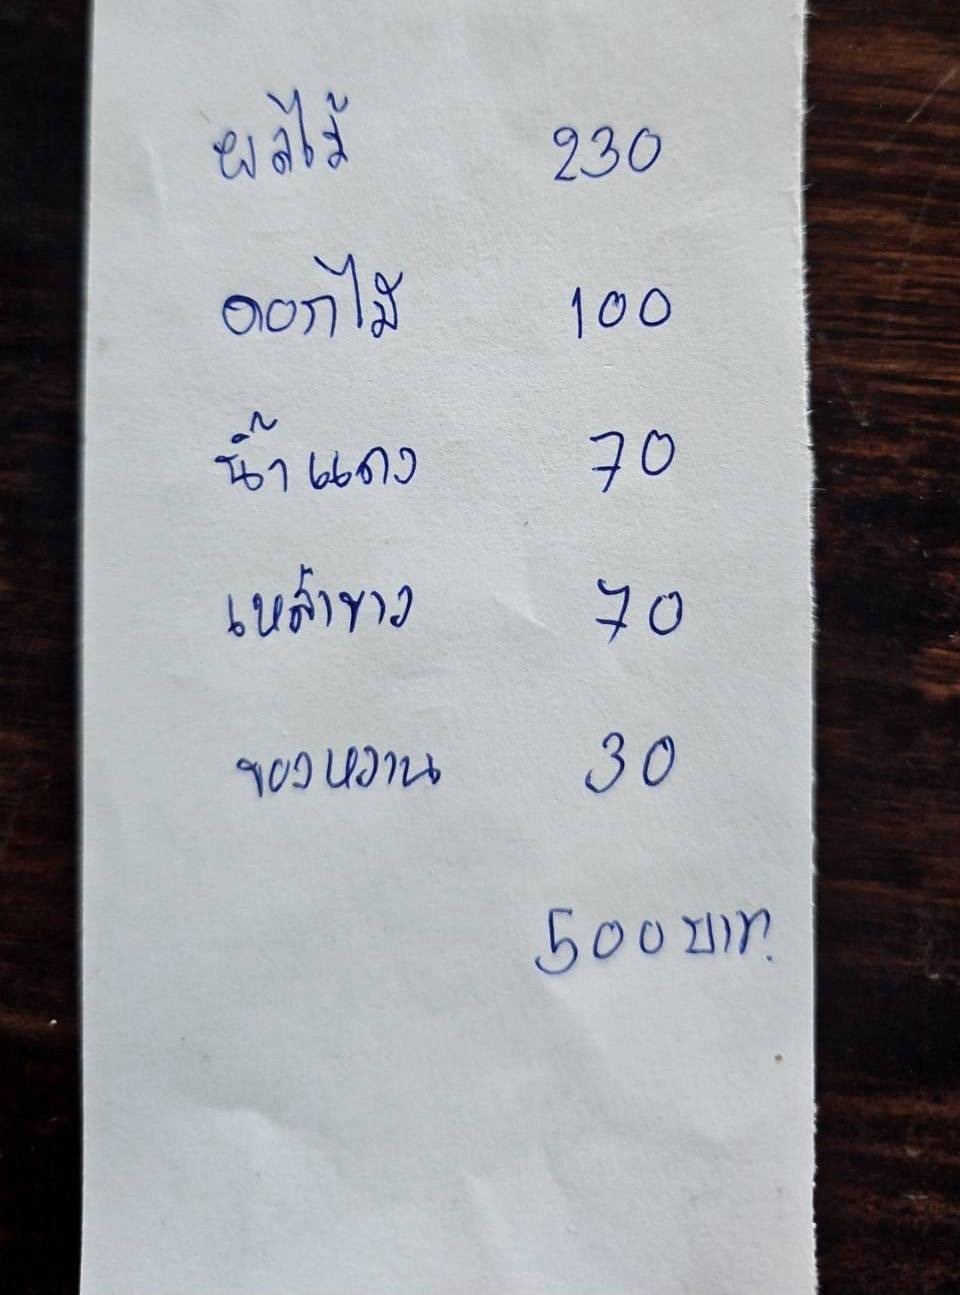 ผลไม้ 230
ดอกไม้ 100
น้ำแดง 70
เหล้าขาว 70
ของหวาน 30
500 บาท.